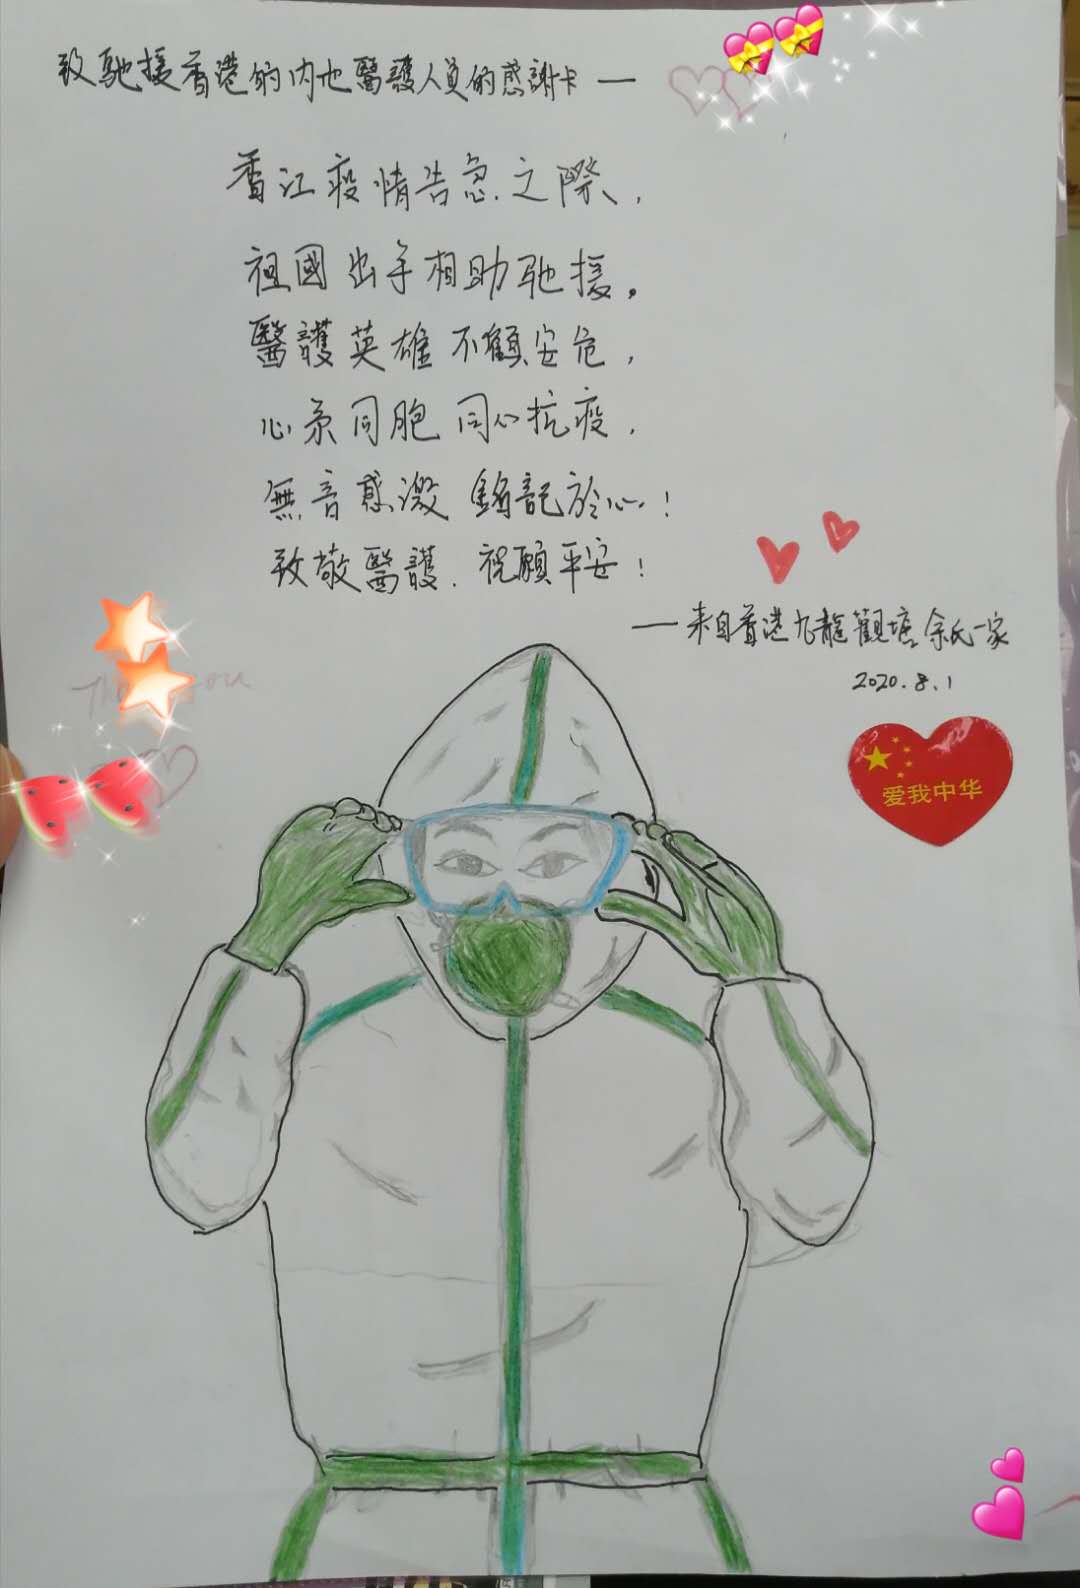 致馳援香港的内地醫護人员的感謝卡 —
香江疫情告急之際，
祖國出手相助驰援。
醫護英雄不顧安危，
心系同胞同心抗疫，
無音感激 銘記於心！
致敬醫護．祝願平安！
—来自香港九龍觀塘余氏一家
2020.8.1
爱我中华